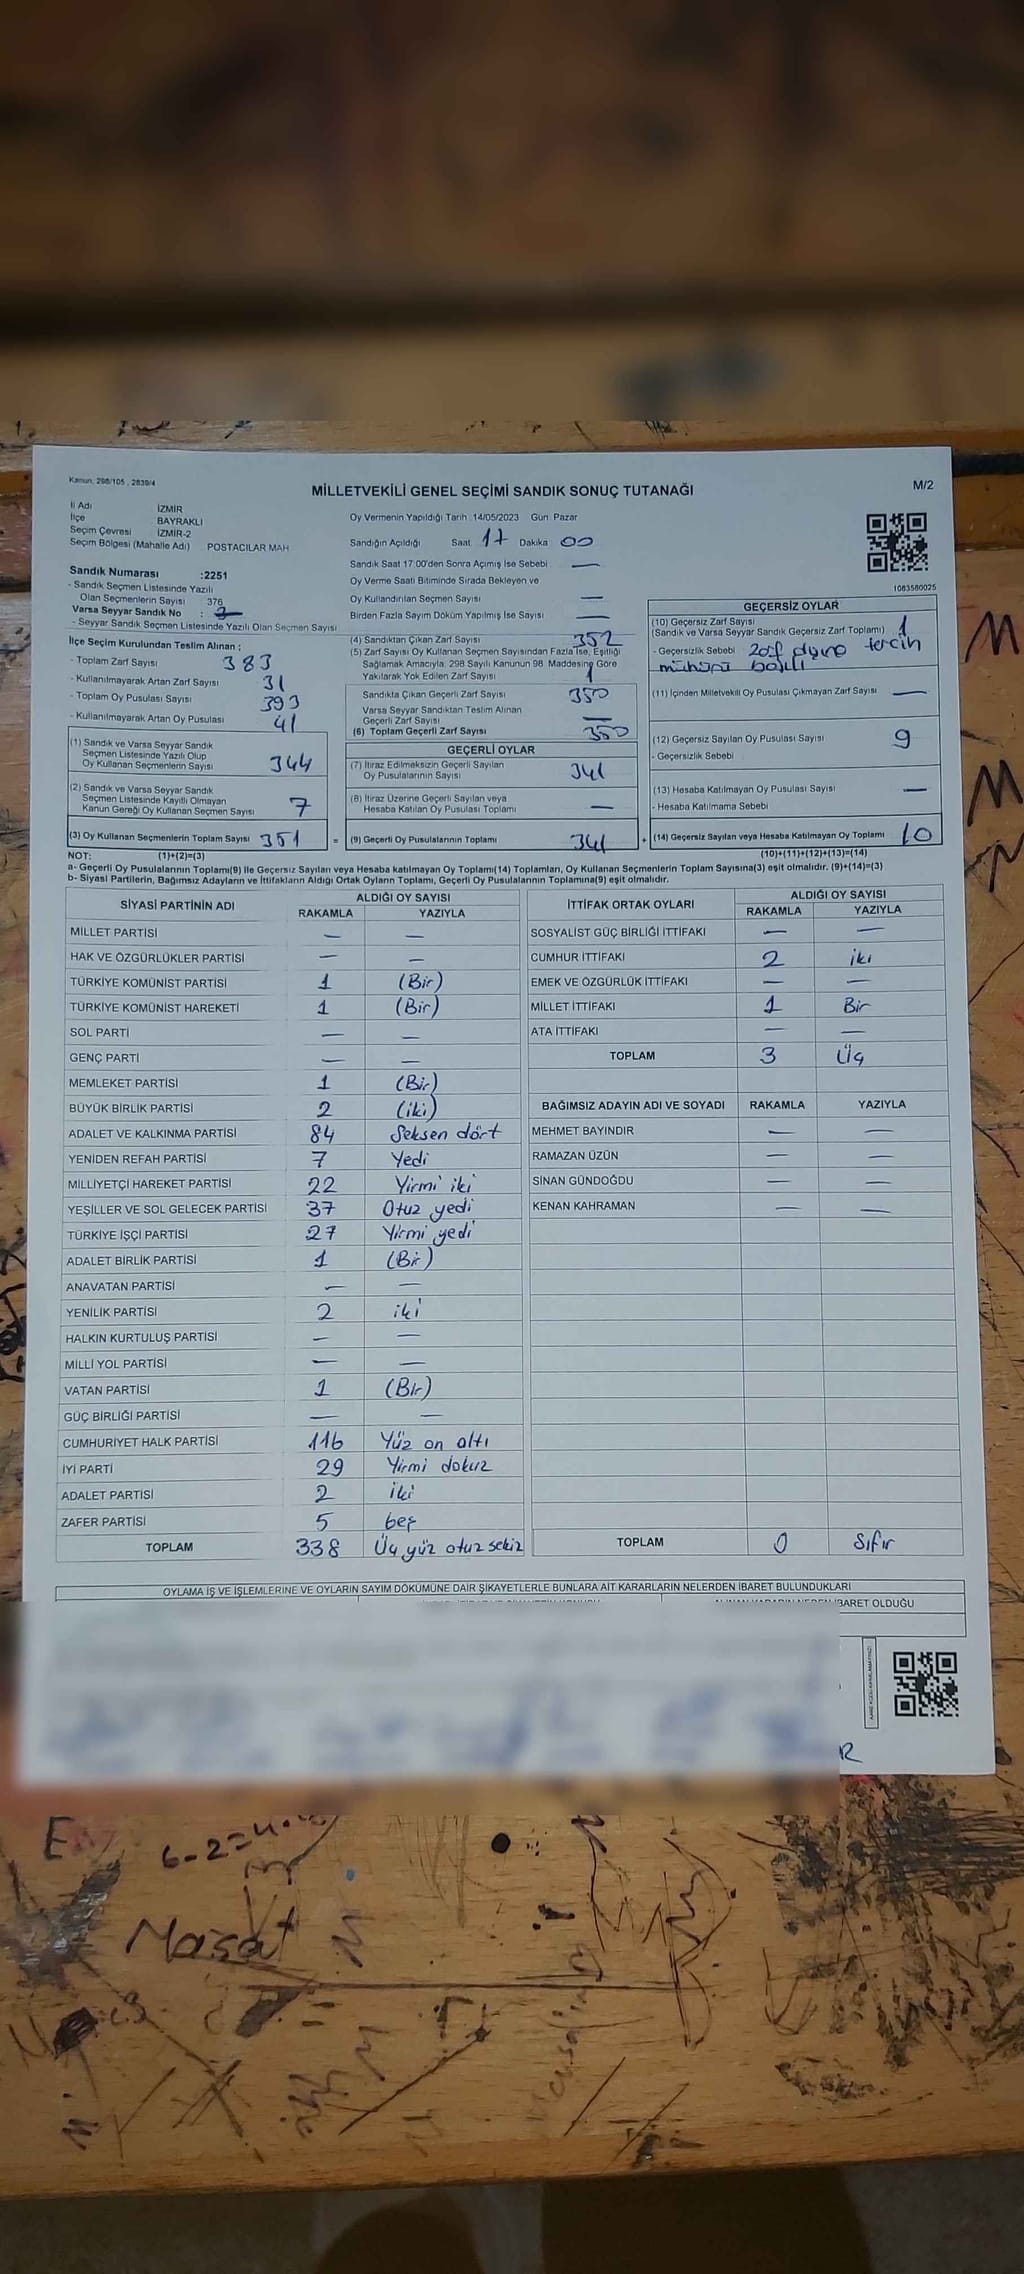 Kanun, 298/105 , 2839/4
MİLLETVEKİLİ GENEL SEÇİMİ SANDIK SONUÇ TUTANAĞI
M/2
İl Adı İZMİR
İlçe BAYRAKLI
Seçim Çevresi İZMİR-2
Seçim Bölgesi (Mahalle Adı) POSTACILAR MAH
Sandık Numarası :2251
- Sandık Seçmen Listesinde Yazılı
Olan Seçmenlerin Sayısı 376
Varsa Seyyar Sandık No :
- Seyyar Sandık Seçmen Listesinde Yazılı Olan Seçmen Sayısı
İlçe Seçim Kurulundan Teslim Alınan :
- Toplam Zarf Sayısı 383
- Kullanılmayarak Artan Zarf Sayısı 31
- Toplam Oy Pusulası Sayısı 393
- Kullanılmayarak Artan Oy Pusulası 41
(1) Sandık ve Varsa Seyyar Sandık
Seçmen Listesinde Yazılı Olup
Oy Kullanan Seçmenlerin Sayısı 344
(2) Sandık ve Varsa Seyyar Sandık
Seçmen Listesinde Kayıtlı Olmayan
Kanun Gereği Oy Kullanan Seçmen Sayısı 7
(3) Oy Kullanan Seçmenlerin Toplam Sayısı 351 =
Oy Vermenin Yapıldığı Tarih :14/05/2023 Gün: Pazar
Sandığın Açıldığı Saat 17 Dakika 00
Sandık Saat 17:00'den Sonra Açımış İse Sebebi —
Oy Verme Saati Bitiminde Sırada Bekleyen ve
Oy Kullandırılan Seçmen Sayısı —
Birden Fazla Sayım Döküm Yapılmış İse Sayısı —
(4) Sandıktan Çıkan Zarf Sayısı 352
(5) Zarf Sayısı Oy Kullanan Seçmen Sayısından Fazla İse, Eşitliği
Sağlamak Amacıyla, 298 Sayılı Kanunun 98. Maddesine Göre
Yakılarak Yok Edilen Zarf Sayısı 1
Sandıkta Çıkan Geçerli Zarf Sayısı 350
Varsa Seyyar Sandıktan Teslim Alınan
Geçerli Zarf Sayısı —
(6) Toplam Geçerli Zarf Sayısı 350
GEÇERLİ OYLAR
(7) İtiraz Edilmeksizin Geçerli Sayılan
Oy Pusulalarının Sayısı 341
(8) İtiraz Üzerine Geçerli Sayılan veya
Hesaba Katılan Oy Pusulası Toplamı —
(9) Geçerli Oy Pusulalarının Toplamı 341 +
1083580025
GEÇERSİZ OYLAR
(10) Geçersiz Zarf Sayısı
(Sandık ve Varsa Seyyar Sandık Geçersiz Zarf Toplamı) 1
- Geçersizlik Sebebi Zarf dışına tercih
mühürü basılı
(11) İçinden Milletvekili Oy Pusulası Çıkmayan Zarf Sayısı —
(12) Geçersiz Sayılan Oy Pusulası Sayısı 9
- Geçersizlik Sebebi
(13) Hesaba Katılmayan Oy Pusulası Sayısı —
- Hesaba Katılmama Sebebi
(14) Geçersiz Sayılan veya Hesaba Katılmayan Oy Toplamı 10
NOT: (1)+(2)=(3) (10)+(11)+(12)+(13)=(14)
a- Geçerli Oy Pusulalarının Toplamı(9) ile Geçersiz Sayılan veya Hesaba katılmayan Oy Toplamı(14) Toplamları, Oy Kullanan Seçmenlerin Toplam Sayısına(3) eşit olmalıdır. (9)+(14)=(3)
b- Siyasi Partilerin, Bağımsız Adayların ve İttifakların Aldığı Ortak Oyların Toplamı, Geçerli Oy Pusulalarının Toplamına(9) eşit olmalıdır.
SİYASİ PARTİNİN ADI ALDIĞI OY SAYISI
RAKAMLA YAZIYLA
MİLLET PARTİSİ — —
HAK VE ÖZGÜRLÜKLER PARTİSİ — —
TÜRKİYE KOMÜNİST PARTİSİ 1 (Bir)
TÜRKİYE KOMÜNİST HAREKETİ 1 (Bir)
SOL PARTİ — —
GENÇ PARTİ — —
MEMLEKET PARTİSİ 1 (Bir)
BÜYÜK BİRLİK PARTİSİ 2 (iki)
ADALET VE KALKINMA PARTİSİ 84 Seksen dört
YENİDEN REFAH PARTİSİ 7 Yedi
MİLLİYETÇİ HAREKET PARTİSİ 22 Yirmi iki
YEŞİLLER VE SOL GELECEK PARTİSİ 37 Otuz yedi
TÜRKİYE İŞÇİ PARTİSİ 27 Yirmi yedi
ADALET BİRLİK PARTİSİ 1 (Bir)
ANAVATAN PARTİSİ — —
YENİLİK PARTİSİ 2 iki
HALKIN KURTULUŞ PARTİSİ — —
MİLLİ YOL PARTİSİ — —
VATAN PARTİSİ 1 (Bir)
GÜÇ BİRLİĞİ PARTİSİ — —
CUMHURİYET HALK PARTİSİ 116 Yüz on altı
İYİ PARTİ 29 Yirmi dokuz
ADALET PARTİSİ 2 iki
ZAFER PARTİSİ 5 beş
TOPLAM 338 Üç yüz otuz sekiz
İTTİFAK ORTAK OYLARI ALDIĞI OY SAYISI
RAKAMLA YAZIYLA
SOSYALİST GÜÇ BİRLİĞİ İTTİFAKI — —
CUMHUR İTTİFAKI 2 iki
EMEK VE ÖZGÜRLÜK İTTİFAKI — —
MİLLET İTTİFAKI 1 Bir
ATA İTTİFAKI — —
TOPLAM 3 Üç
BAĞIMSIZ ADAYIN ADI VE SOYADI RAKAMLA YAZIYLA
MEHMET BAYINDIR — —
RAMAZAN ÜZÜN — —
SİNAN GÜNDOĞDU — —
KENAN KAHRAMAN — —
TOPLAM 0 Sıfır
OYLAMA İŞ VE İŞLEMLERİNE VE OYLARIN SAYIM DÖKÜMÜNE DAİR ŞİKAYETLERLE BUNLARA AİT KARARLARIN NELERDEN İBARET BULUNDUKLARI
İBARET OLDUĞU
6-2=4
Masat